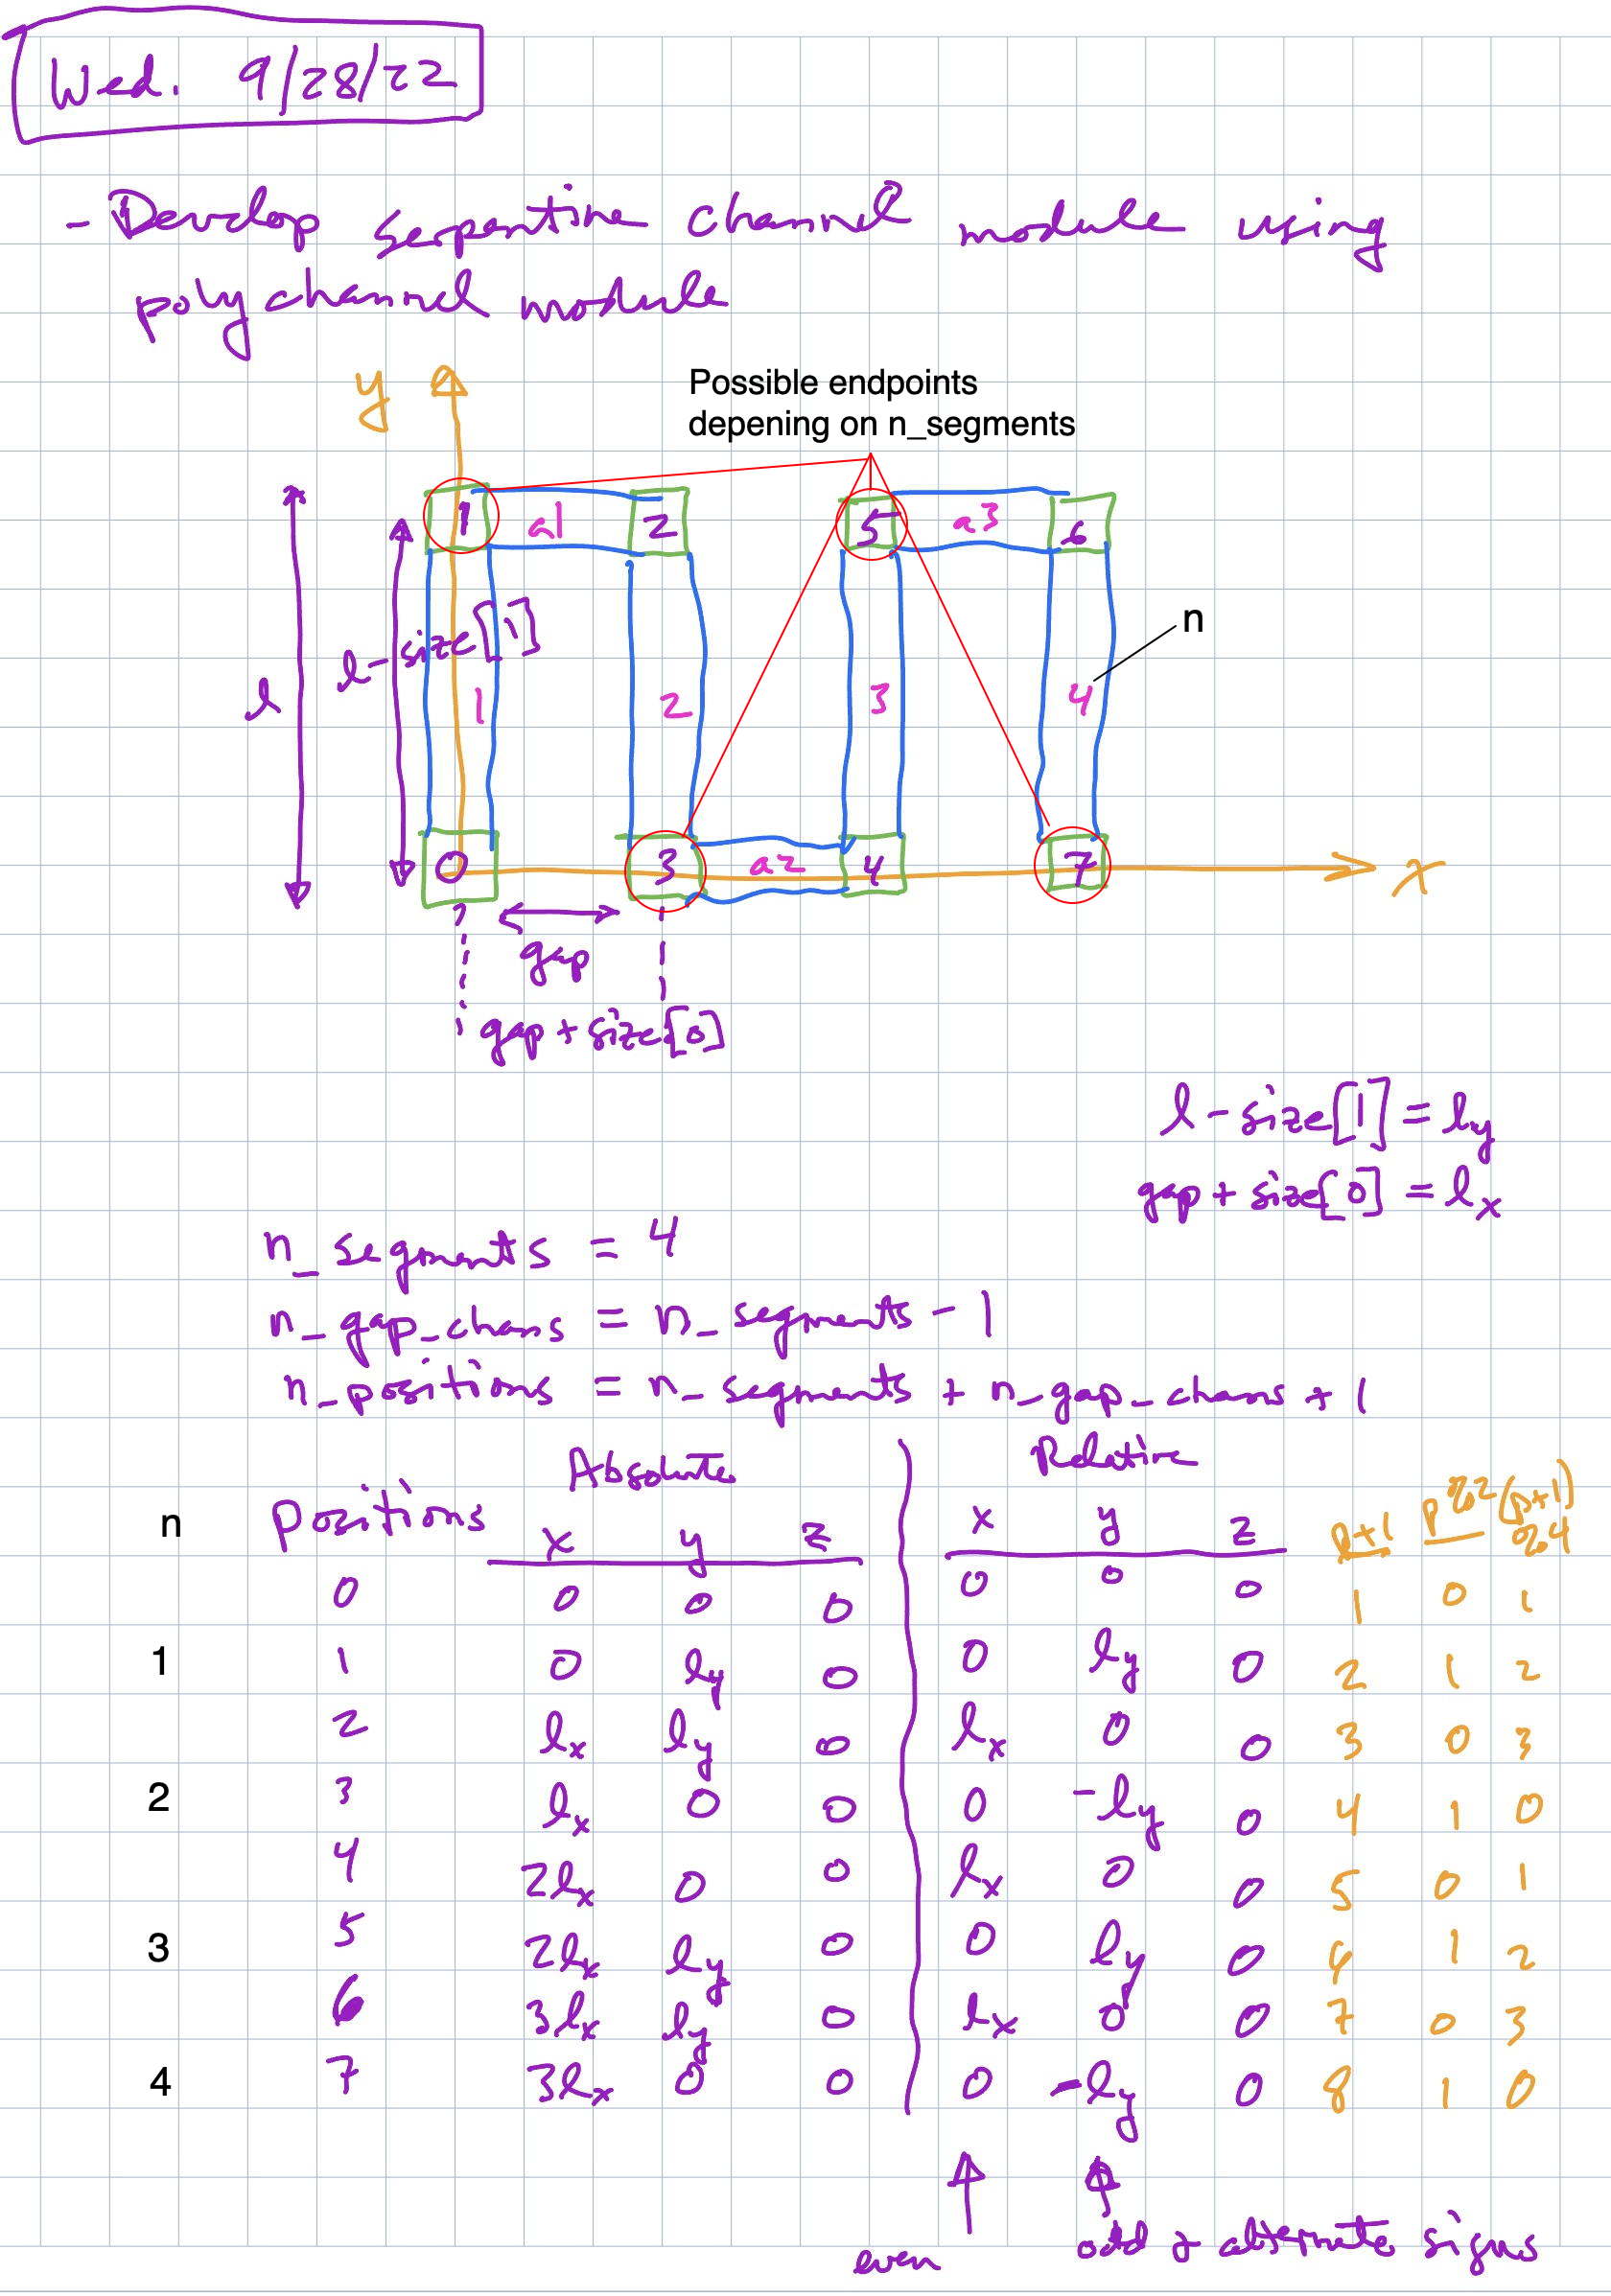 Wed. 9/28/22
- Develop serpentine channel module using
polychannel module
Possible endpoints
depening on n_segments
y
1 a1 2 5 a3 6
n
l l-size[1] 1 2 3 4
0 3 a2 4 7 x
gap
gap + size[0]
l - size[1] = ly
gap + size[0] = lx
n_segments = 4
n_gap_chans = n_segments - 1
n_positions = n_segments + n_gap_chans + 1
Absolute Relative
n positions x y z x y z p+1 p%2 (p+1)%4
0 0 0 0 0 0 0 1 0 1
1 1 0 ly 0 0 ly 0 2 1 2
2 lx ly 0 lx 0 0 3 0 3
2 3 lx 0 0 0 -ly 0 4 1 0
4 2lx 0 0 lx 0 0 5 0 1
3 5 2lx ly 0 0 ly 0 6 1 2
6 3lx ly 0 lx 0 0 7 0 3
4 7 3lx 0 0 0 -ly 0 8 1 0
even odd & alternate signs